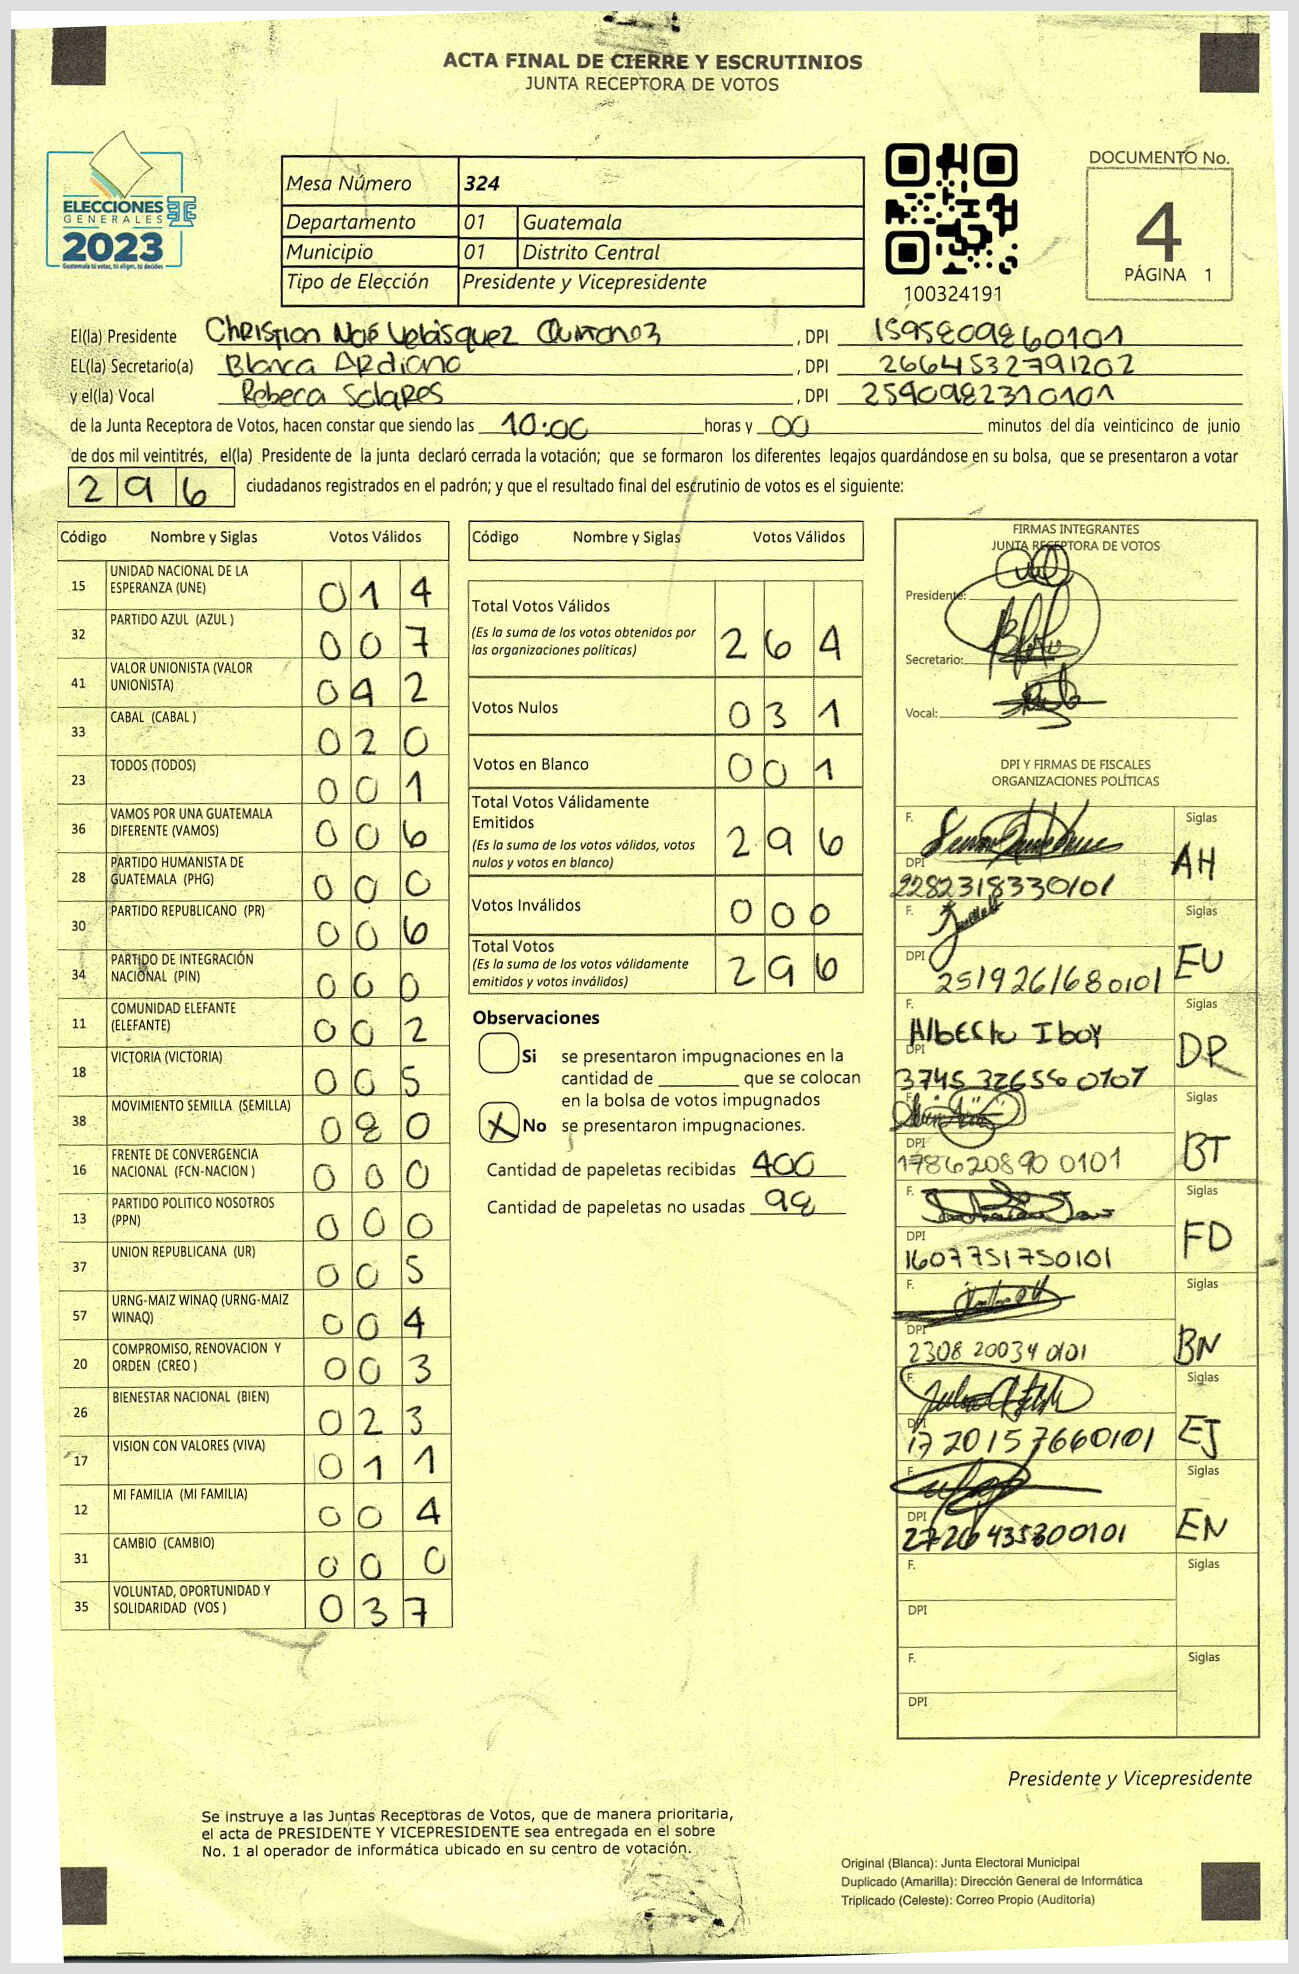 ACTA FINAL DE CIERRE Y ESCRUTINIOS
JUNTA RECEPTORA DE VOTOS
ELECCIONES
GENERALES
2023
Guatemala tú votas, tú eliges, tú decides
Mesa Número 324
Departamento 01 Guatemala
Municipio 01 Distrito Central
Tipo de Elección Presidente y Vicepresidente
100324191
DOCUMENTO No.
4
PÁGINA 1
El(la) Presidente Christian Noé Velásquez Quiñonez, DPI 1595809860101
EL(la) Secretario(a) Blanca Ardiano, DPI 2664532791202
y el(la) Vocal Rebeca Solares, DPI 2590982310101
de la Junta Receptora de Votos, hacen constar que siendo las 10:00 horas y 00 minutos del día veinticinco de junio
de dos mil veintitrés, el(la) Presidente de la junta declaró cerrada la votación; que se formaron los diferentes legajos quardándose en su bolsa, que se presentaron a votar
296 ciudadanos registrados en el padrón; y que el resultado final del escrutinio de votos es el siguiente:
Código Nombre y Siglas Votos Válidos
15 UNIDAD NACIONAL DE LA ESPERANZA (UNE) 014
32 PARTIDO AZUL (AZUL ) 007
41 VALOR UNIONISTA (VALOR UNIONISTA) 042
33 CABAL (CABAL ) 020
23 TODOS (TODOS) 001
36 VAMOS POR UNA GUATEMALA DIFERENTE (VAMOS) 006
28 PARTIDO HUMANISTA DE GUATEMALA (PHG) 000
30 PARTIDO REPUBLICANO (PR) 006
34 PARTIDO DE INTEGRACIÓN NACIONAL (PIN) 000
11 COMUNIDAD ELEFANTE (ELEFANTE) 002
18 VICTORIA (VICTORIA) 005
38 MOVIMIENTO SEMILLA (SEMILLA) 080
16 FRENTE DE CONVERGENCIA NACIONAL (FCN-NACION ) 000
13 PARTIDO POLITICO NOSOTROS (PPN) 000
37 UNION REPUBLICANA (UR) 005
57 URNG-MAIZ WINAQ (URNG-MAIZ WINAQ) 004
20 COMPROMISO, RENOVACION Y ORDEN (CREO ) 003
26 BIENESTAR NACIONAL (BIEN) 023
17 VISION CON VALORES (VIVA) 011
12 MI FAMILIA (MI FAMILIA) 004
31 CAMBIO (CAMBIO) 000
35 VOLUNTAD, OPORTUNIDAD Y SOLIDARIDAD (VOS ) 037
Código Nombre y Siglas Votos Válidos
Total Votos Válidos 264
(Es la suma de los votos obtenidos por
las organizaciones políticas)
Votos Nulos 031
Votos en Blanco 001
Total Votos Válidamente
Emitidos 296
(Es la suma de los votos válidos, votos
nulos y votos en blanco)
Votos Inválidos 000
Total Votos 296
(Es la suma de los votos válidamente
emitidos y votos inválidos)
Observaciones
Si se presentaron impugnaciones en la
cantidad de ________ que se colocan
en la bolsa de votos impugnados
X No se presentaron impugnaciones.
Cantidad de papeletas recibidas 400
Cantidad de papeletas no usadas 98
FIRMAS INTEGRANTES
JUNTA RECEPTORA DE VOTOS
Presidente:
Secretario:
Vocal:
DPI Y FIRMAS DE FISCALES
ORGANIZACIONES POLÍTICAS
F. Siglas
DPI 2282318330101 AH
F. Siglas
DPI 2519261680101 EU
F. Alberto Iboy Siglas
DPI 3745326560101 DR
F. Siglas
DPI 1786208900101 BT
F. Siglas
DPI 1607751750101 FD
F. Siglas
DPI 2308 20034 0101 BN
F. Siglas
DPI 1720157660101 EJ
F. Siglas
DPI 2726435300101 EN
F. Siglas
DPI
F. Siglas
DPI
Presidente y Vicepresidente
Se instruye a las Juntas Receptoras de Votos, que de manera prioritaria,
el acta de PRESIDENTE Y VICEPRESIDENTE sea entregada en el sobre
No. 1 al operador de informática ubicado en su centro de votación.
Original (Blanca): Junta Electoral Municipal
Duplicado (Amarilla): Dirección General de Informática
Triplicado (Celeste): Correo Propio (Auditoría)